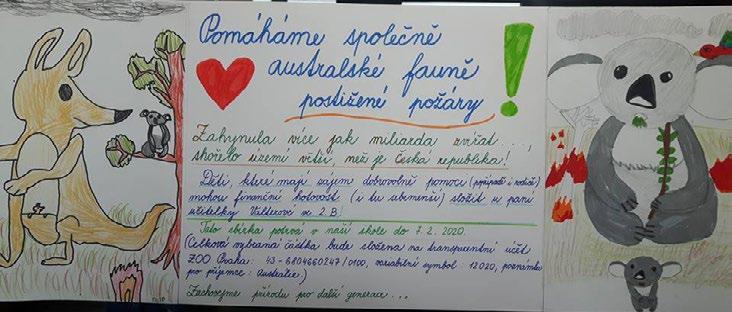 Pomáháme společně
australské fauně
postižené požáry !
Zahynula více jak miliarda zvířat ...,
shořelo území větší, než je Česká republika!
Děti, které mají zájem dobrovolně pomoci (popřípadě i rodiče)
mohou finanční hotovost (i tu sebemenší) složit u paní
učitelky Válterové ve 2.B!
Tato sbírka potrvá v naší škole do 7. 2. 2020.
(Celková vybraná částka bude složena na transparentní účet
ZOO Praha: 43-6804660247/0100, variabilní symbol 12020, poznámka
pro příjemce: Austrálie.)
Zachovejme přírodu pro další generace ...